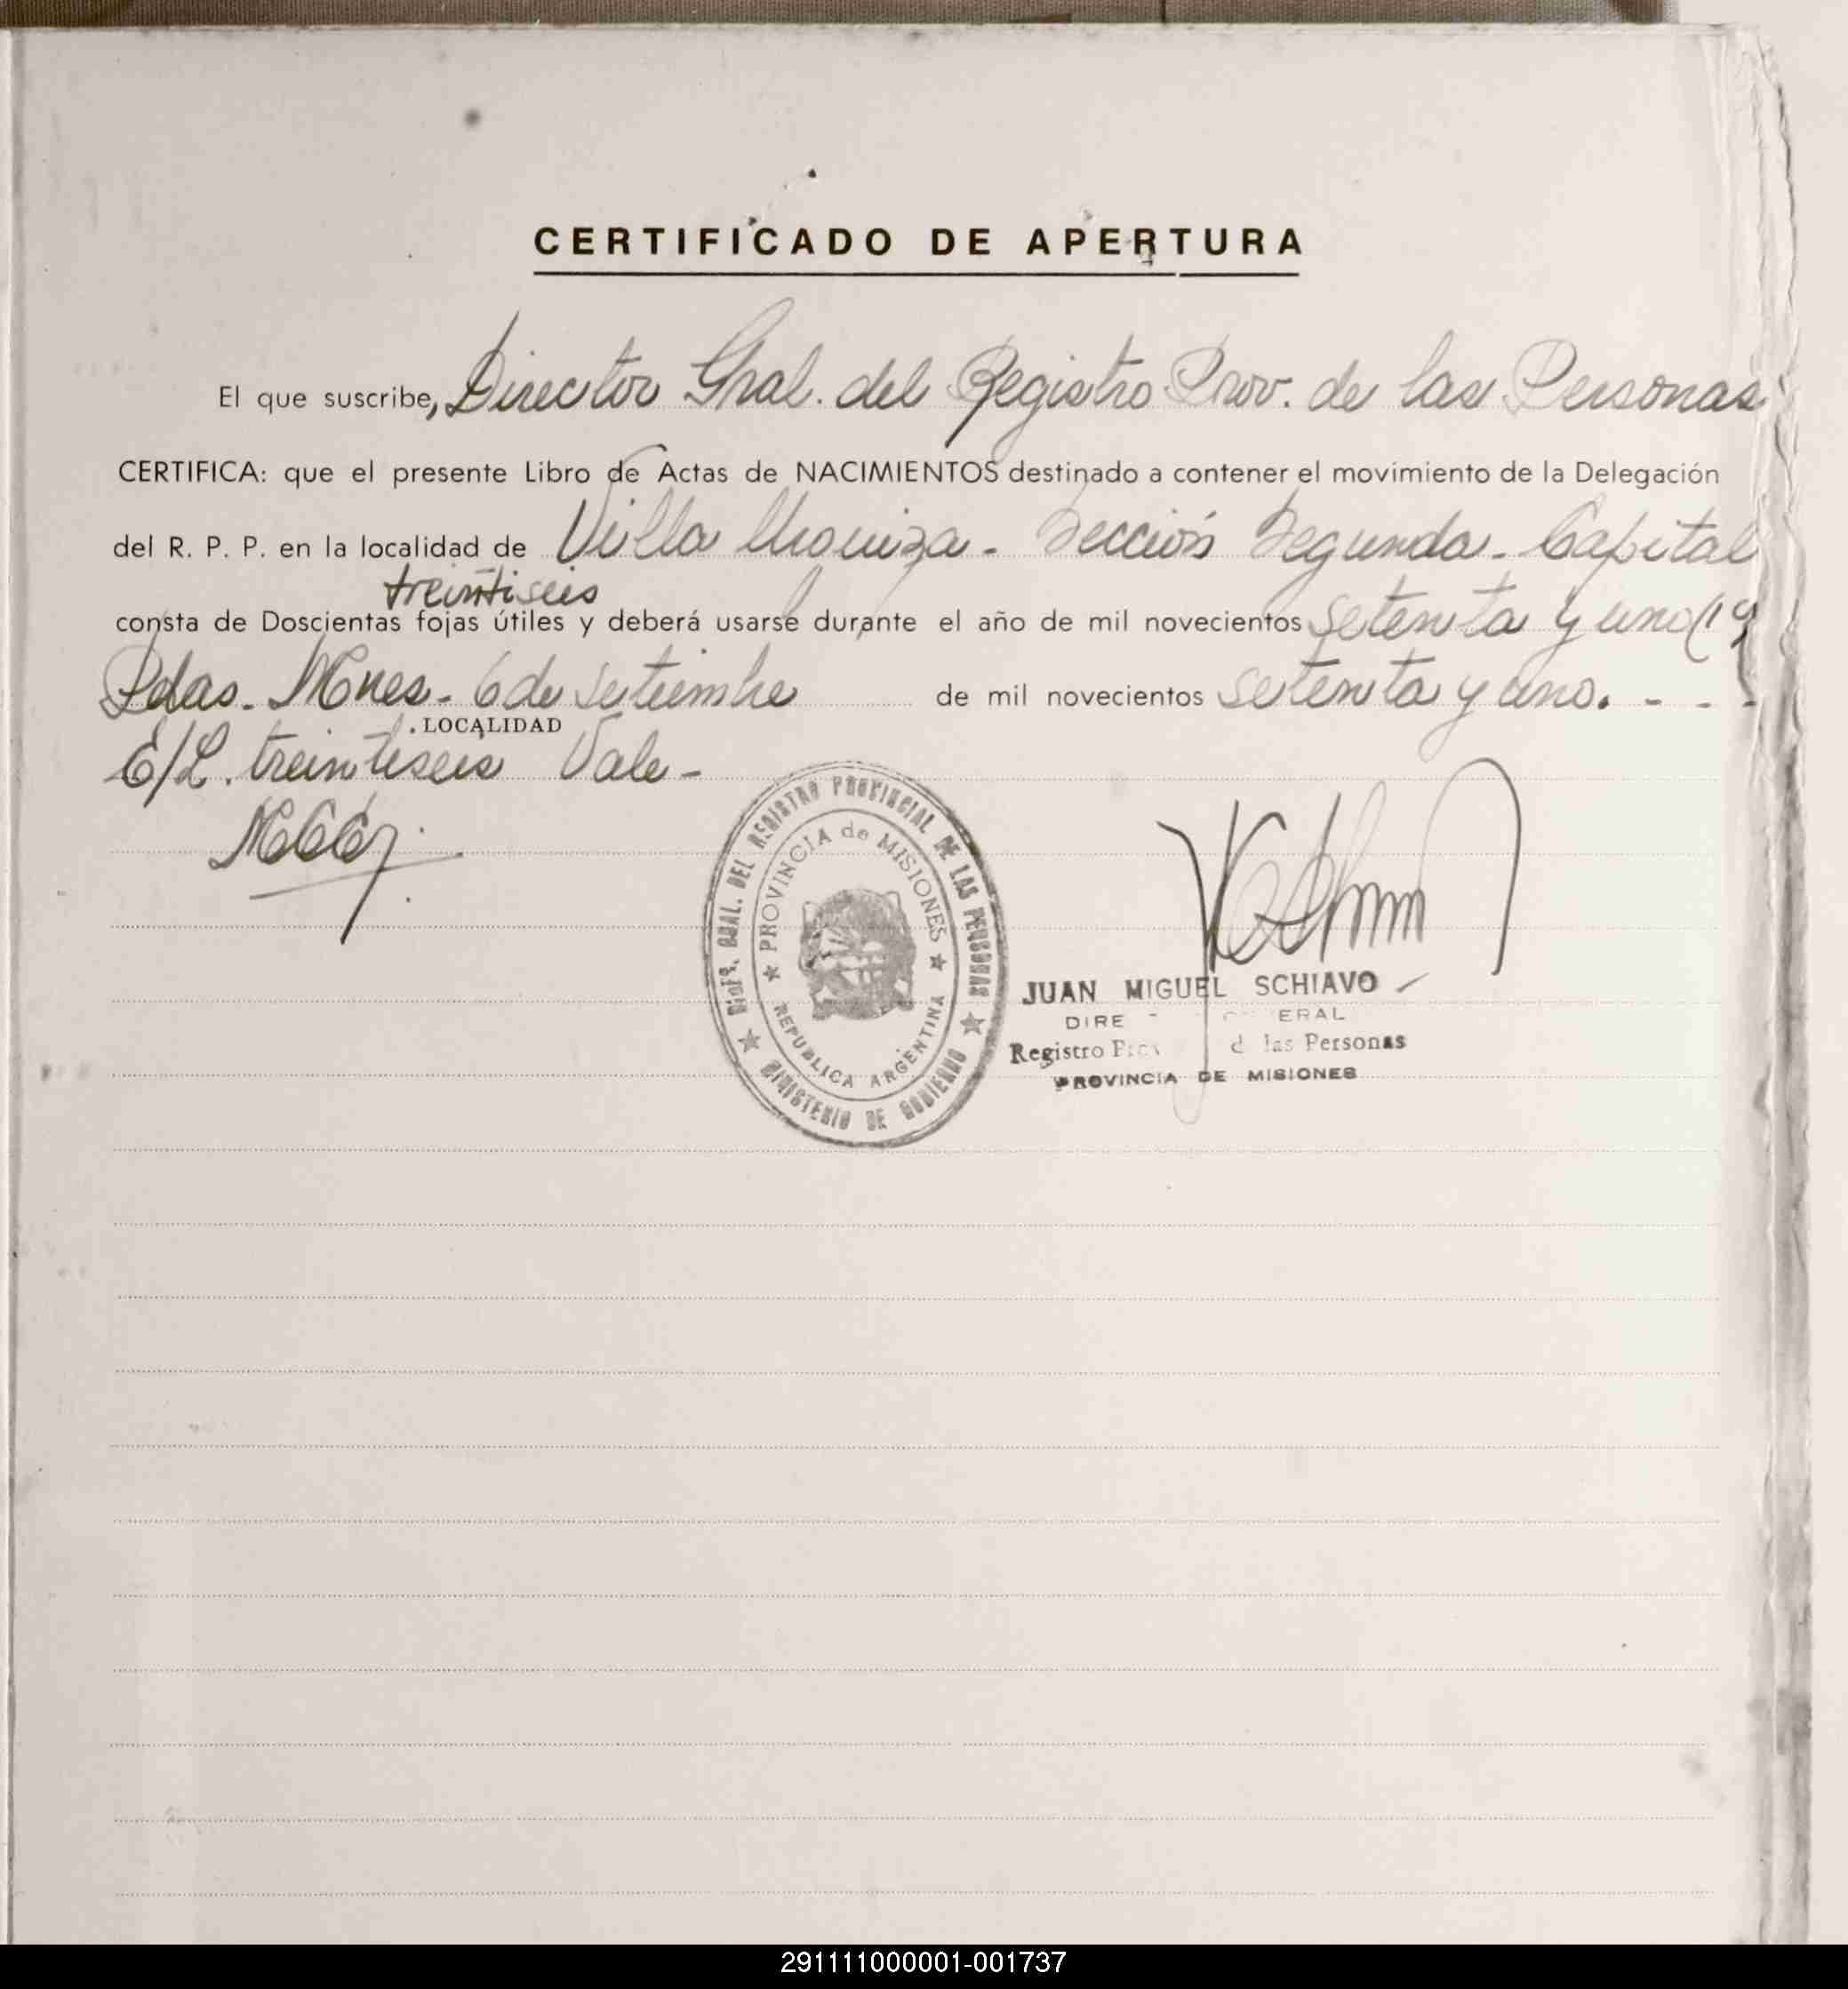 CERTIFICADO DE APERTURA
El que suscribe, Director Gral. del Registro Prov. de las Personas
CERTIFICA: que el presente Libro de Actas de NACIMIENTOS destinado a contener el movimiento de la Delegación
del R. P. P. en la localidad de Villa Urquiza - Sección Segunda - Capital
treintiseis
consta de Doscientas fojas útiles y deberá usarse durante el año de mil novecientos setenta y uno (19
Pdas. Mnes. 6 de setiembre de mil novecientos setenta y uno. - - -
LOCALIDAD
E/L. treintiseis Vale -
DIREC. GRAL. DEL REGISTRO PROVINCIAL DE LAS PERSONAS
PROVINCIA de MISIONES
REPUBLICA ARGENTINA
MINISTERIO DE GOBIERNO
JUAN MIGUEL SCHIAVO
DIRE ERAL
Registro las Personas
PROVINCIA DE MISIONES
291111000001-001737